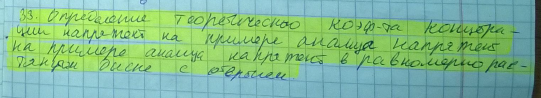 33. Определение теоретического коэф-та концетра-
ции напряжений на примере анализа напряжений
на примере анализа напряжений в равномерно рас-
тянутом диске с отверстием